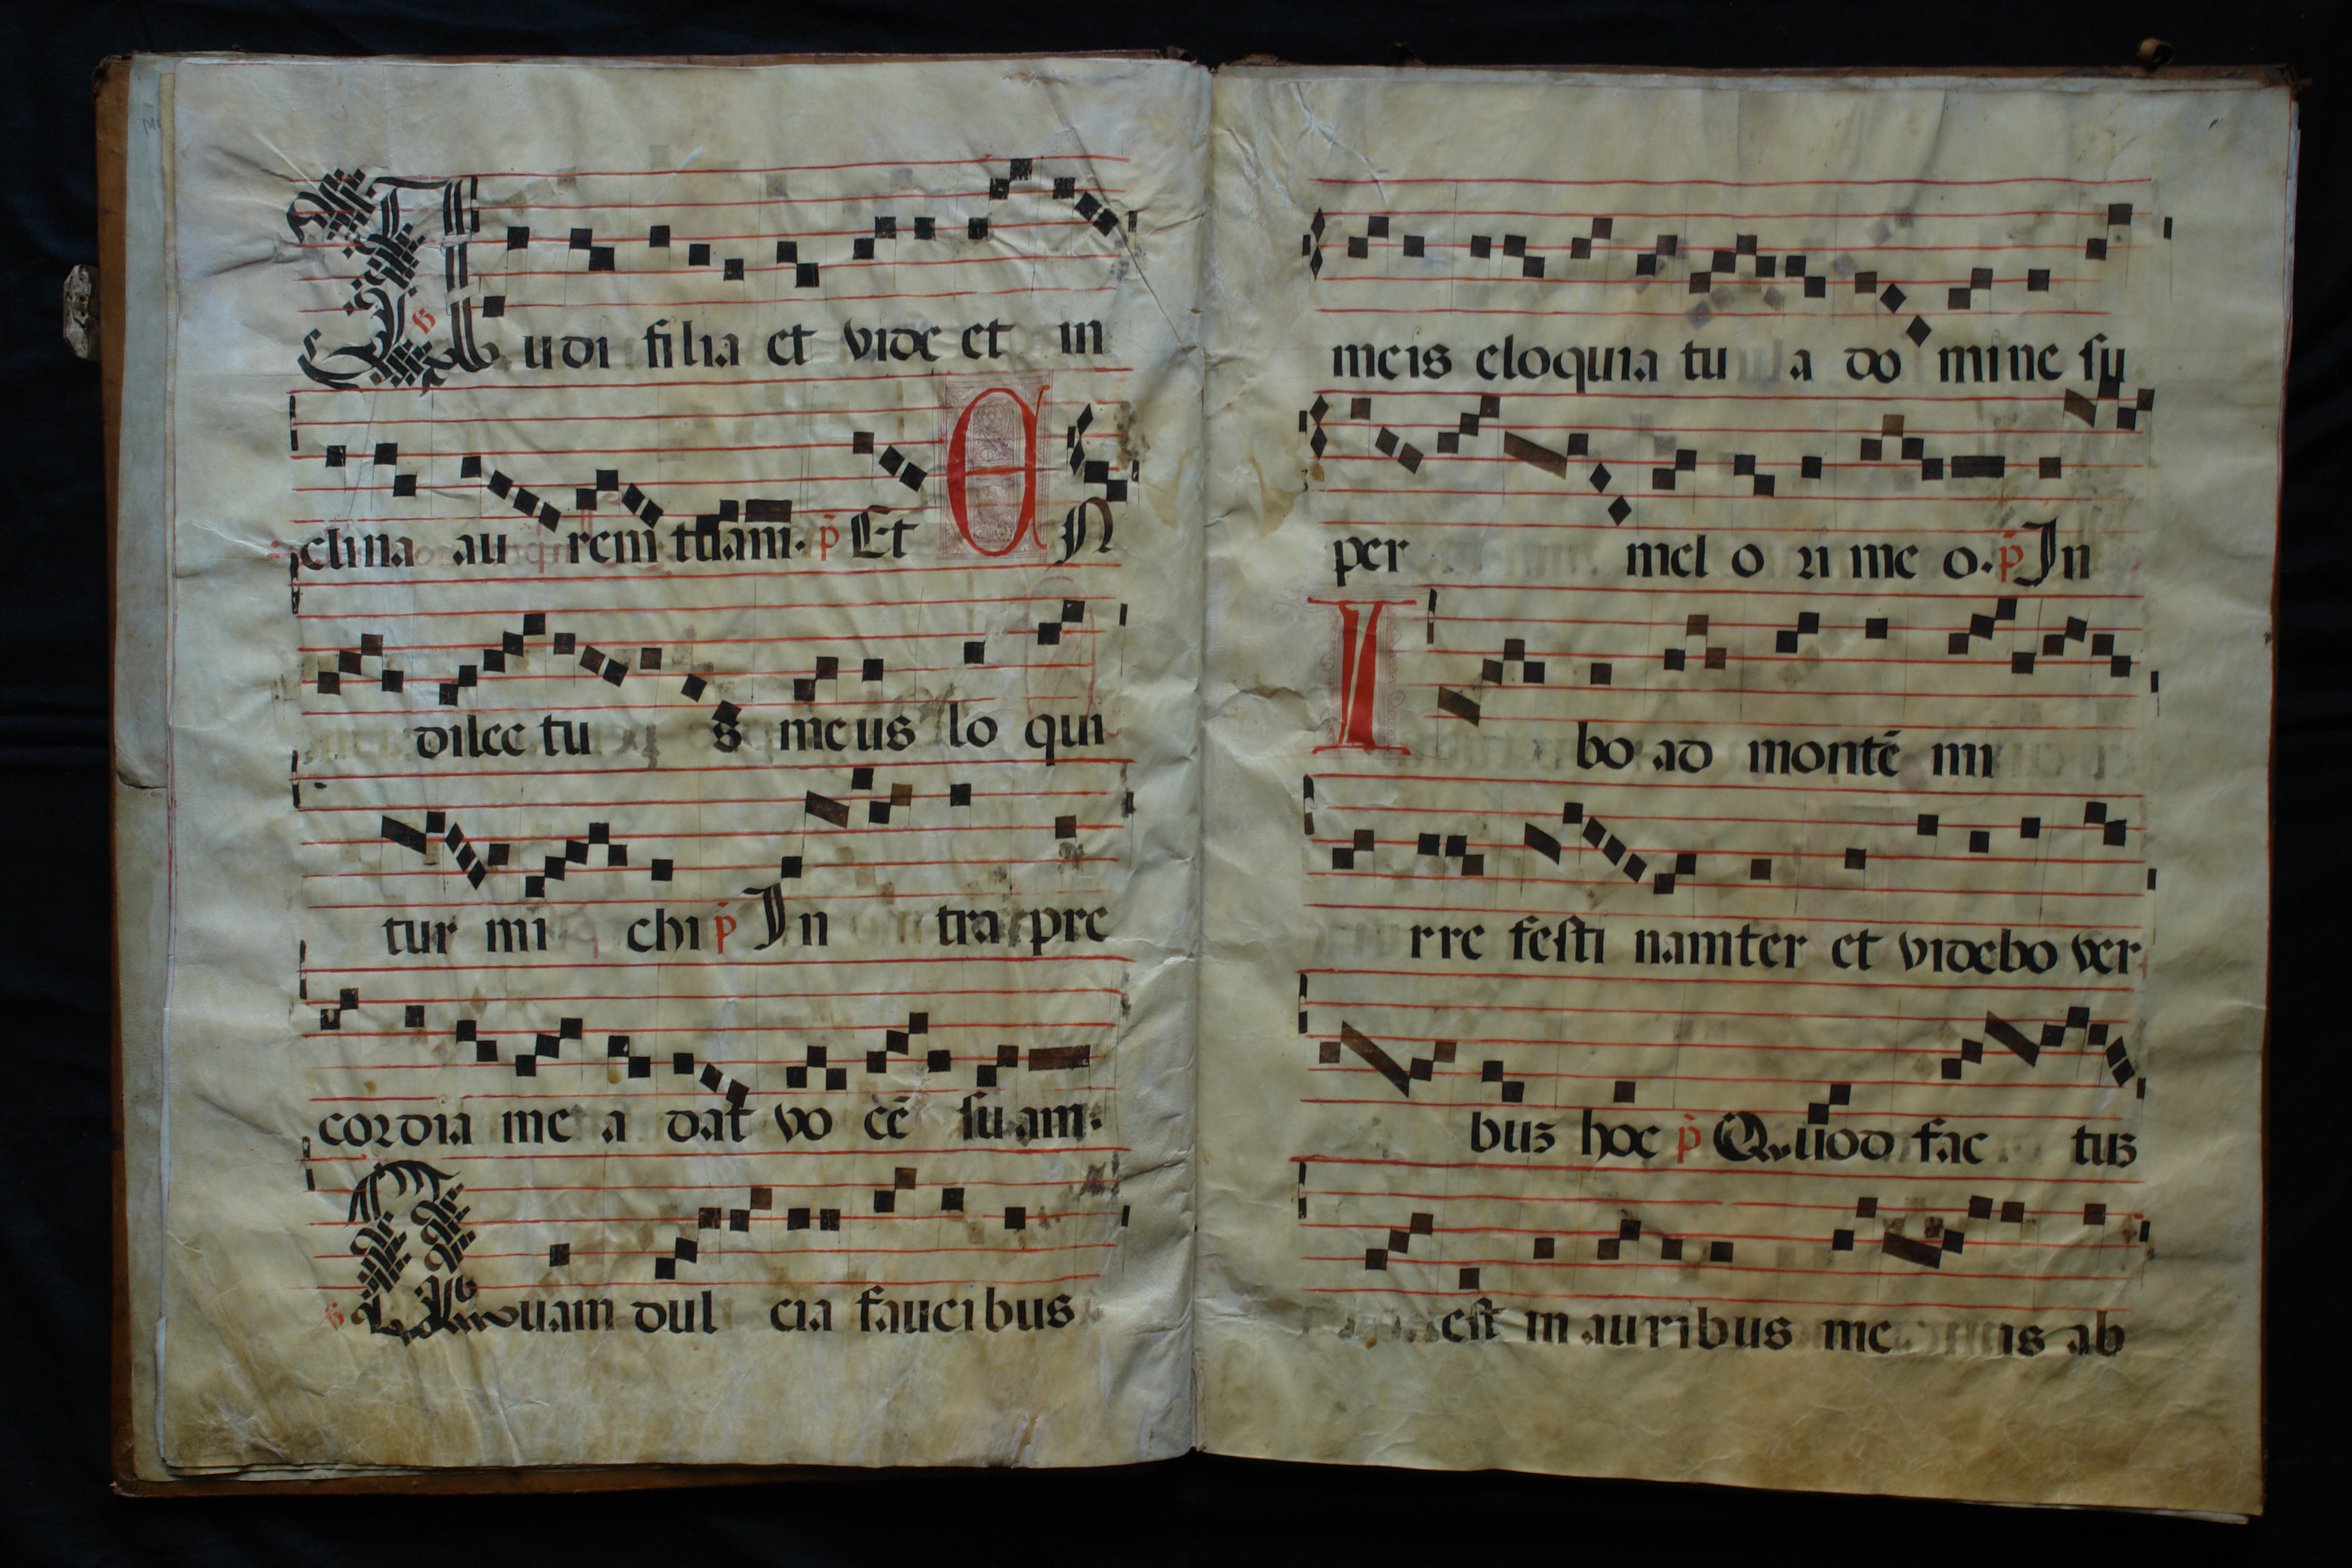 Audi filia et vide et in
clina aurem tuam. p̄ Et EN
dilectus meus loqui
tur michi p̄ Intra pre
cordia mea dat vo cē suam.
Quam dulcia faucibus
meis eloquia tua domine su
per mel ori meo. p̄ In
Ibo ad montē mi
rre festinamter et videbo ver
bus hoc p̄ Quod factus
est in auribus meis ab